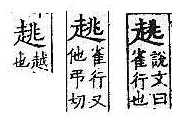 趒
說文曰
雀行也
趒
雀行又
他弔切
趒
越
也